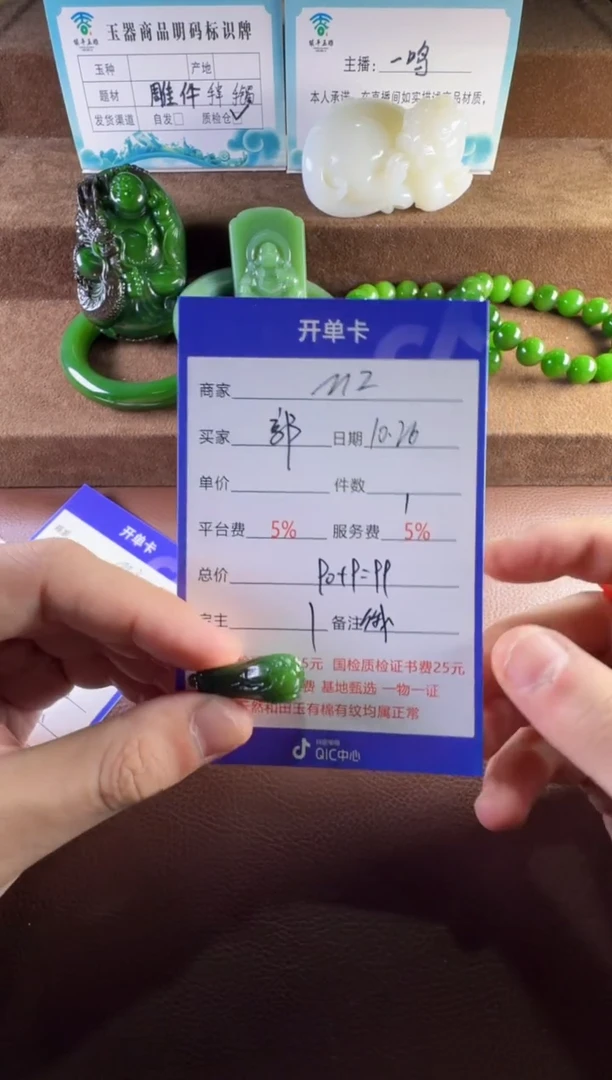 玉器商品明码标识牌
玉种 产地
题材 雕件
发货渠道 自发□ 质检仓
主播：一鸣
本人承诺，在直播间如实描述产品材质，
开单卡
商家
买家 郭 日期 10.26
单价 件数 1
平台费 5% 服务费 5%
总价
1 备注
5元 国检质检证书费25元
费 基地甄选 一物一证
然和田玉有棉有纹均属正常
QIC中心
开单卡